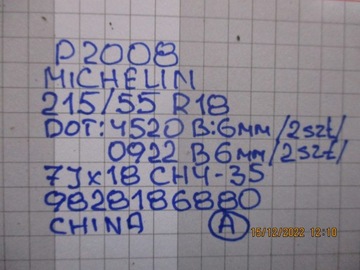 P2008
MICHELIN
215/55 R18
DOT: 4520 B:6mm/2szt/
0922 B6mm/2szt/
7Jx18 CH4-35
9828186880
CHINA A
15/12/2022 12:10